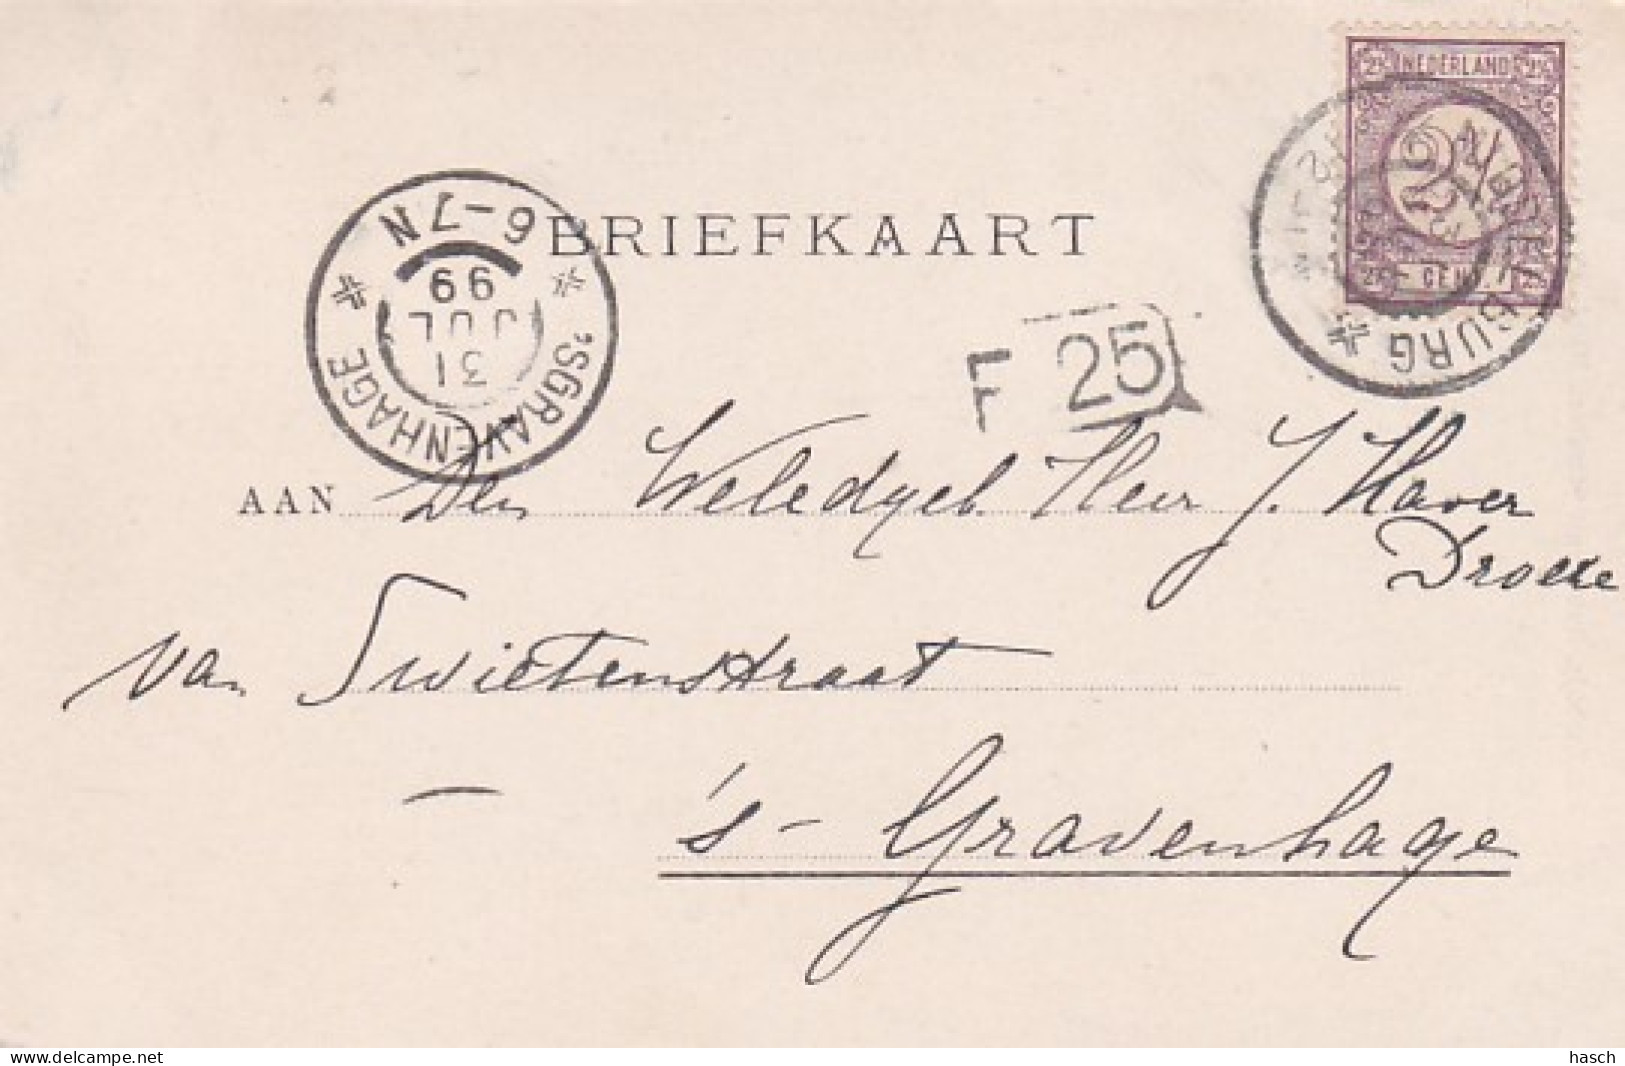 2½ NEDERLAND 2½
2½
2½ CENT. 2½
BRIEFKAART
'SGRAVENHAGE
6-7N
31
JUL
99
F 25
AAN Den Weledgeb. Heer J. Haver
Droeze
van Swietenstraat
's-Gravenhage
www.delcampe.net
hasch